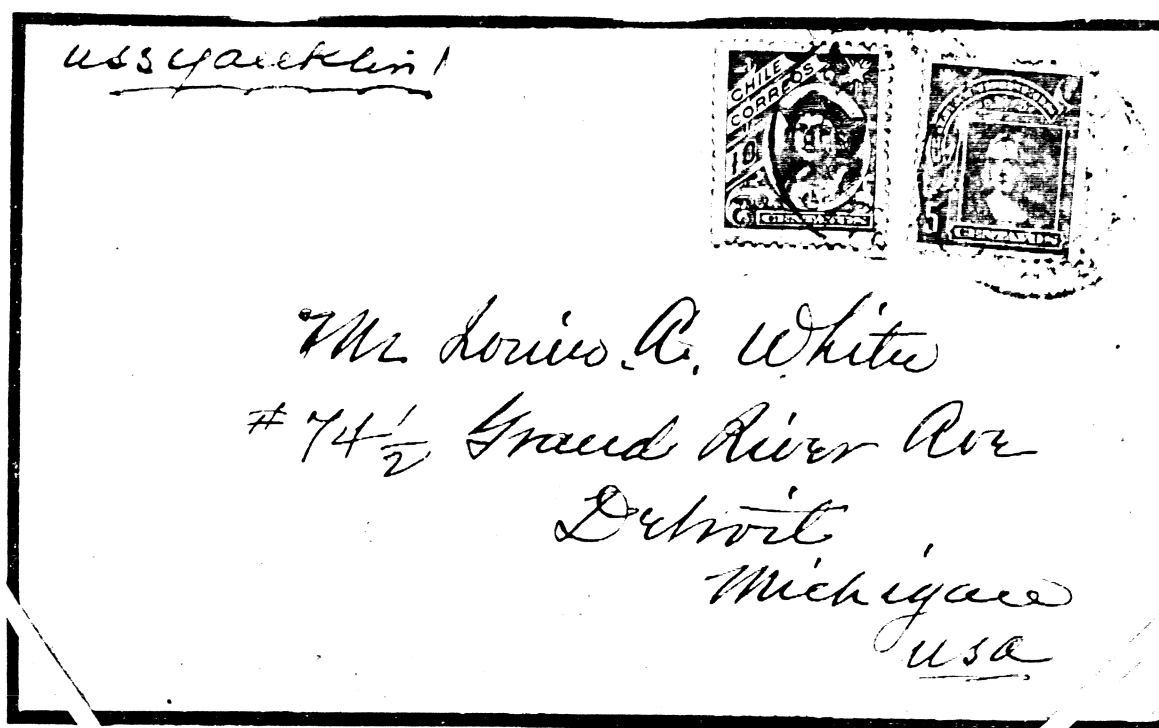 USS Yankton
CHILE
CORREOS
10
CENTAVOS
5
CENTAVOS
Mr Louis A. White
# 74 1/2 Grand River Ave
Detroit
Michigan
USA